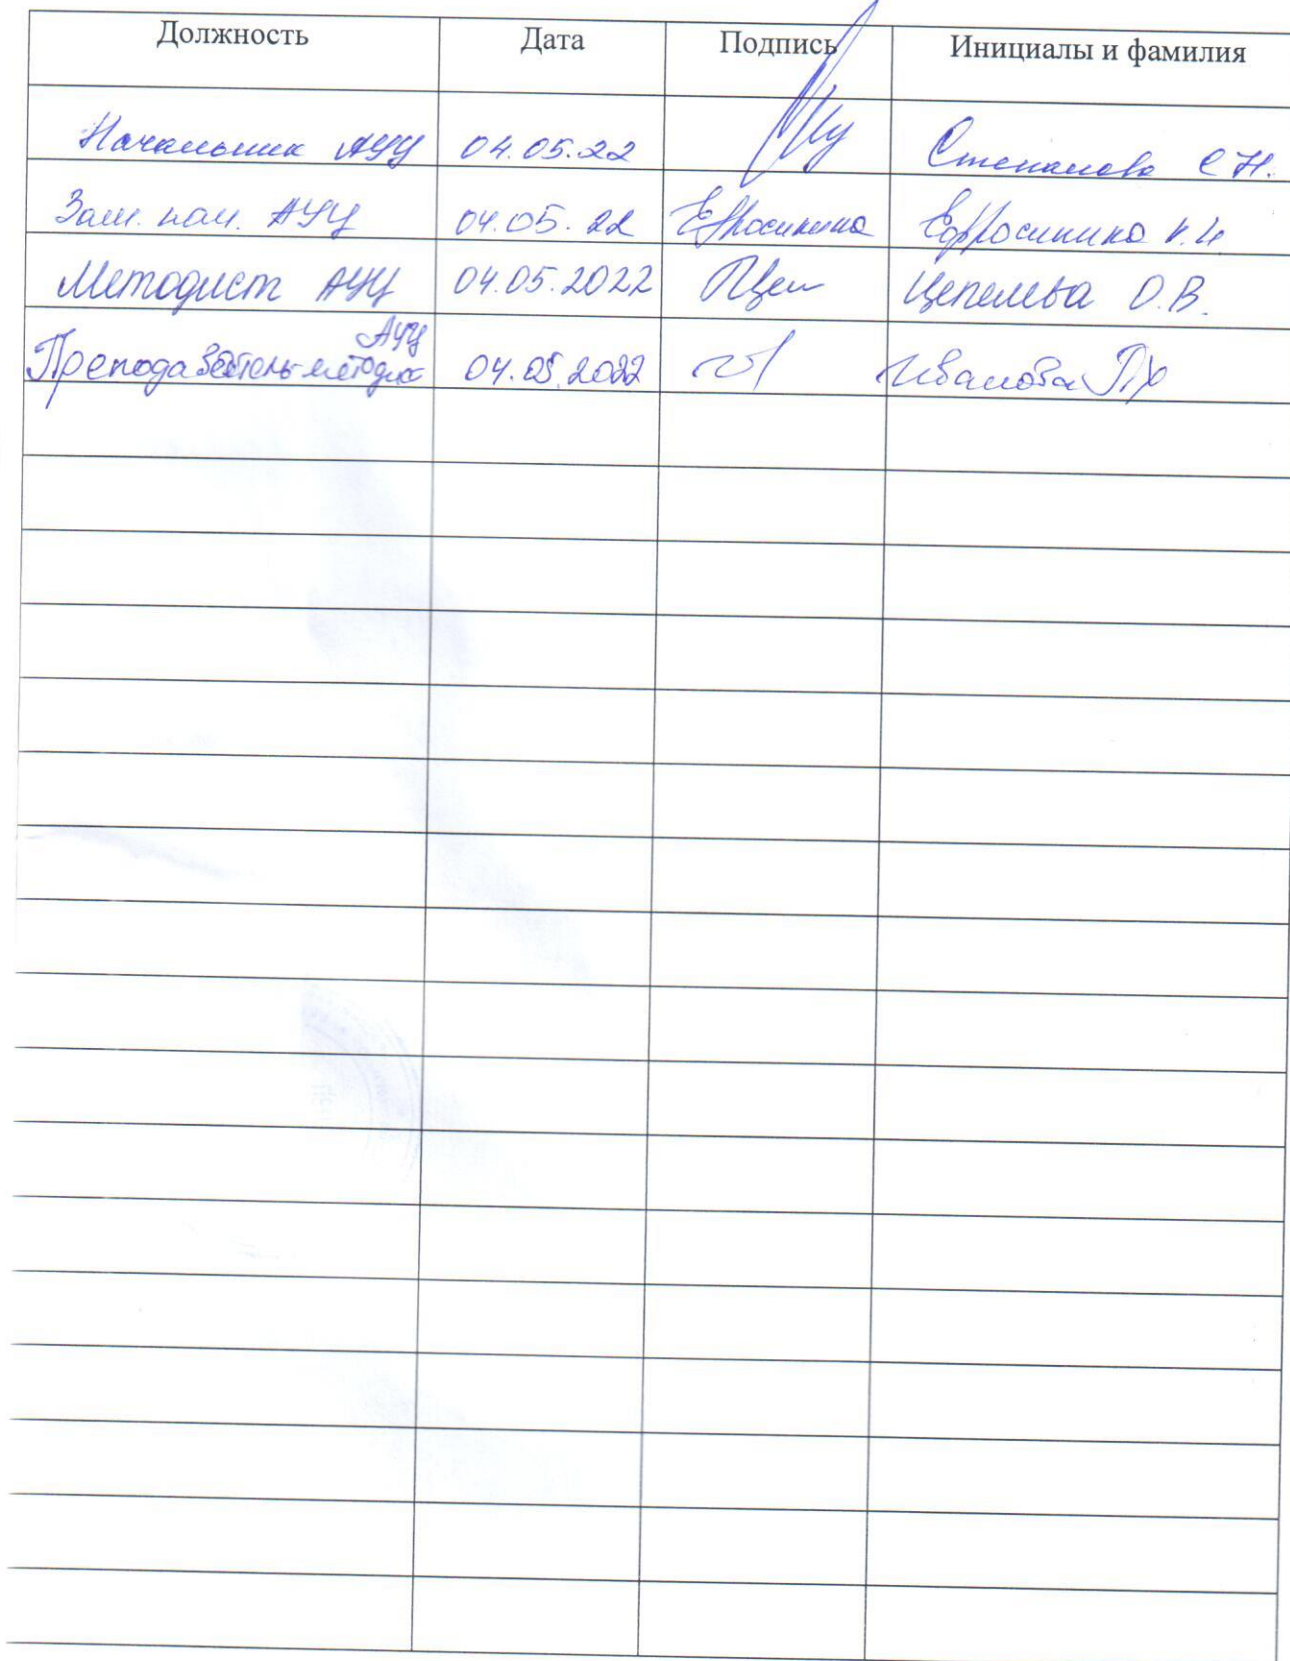 Должность Дата Подпись Инициалы и фамилия
Начальник АУЦ 04.05.22 Степанова С.Н.
Зам. нач. АУЦ 04.05.22 Ефросинина Ефросинина К.И.
Методист АУЦ 04.05.2022 Цепелева О.В.
АУЦ
Преподаватель-методист 04.05.2022 Иванова